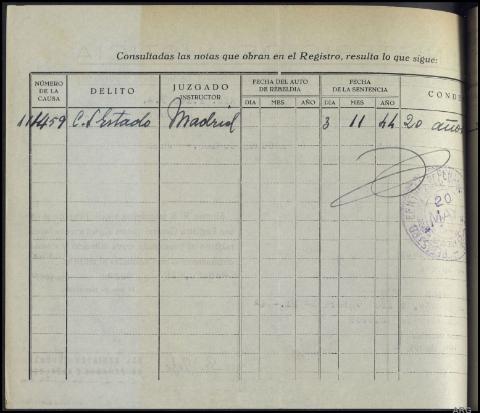 Consultadas las notas que obran en el Registro, resulta lo que sigue:
NÚMERO DE LA CAUSA
DELITO
JUZGADO INSTRUCTOR
FECHA DEL AUTO DE REBELDIA
DIA MES AÑO
FECHA DE LA SENTENCIA
DIA MES AÑO
CONDE
111459 C. s/ Estado Madrid 3 11 44 20 años
20
MAY